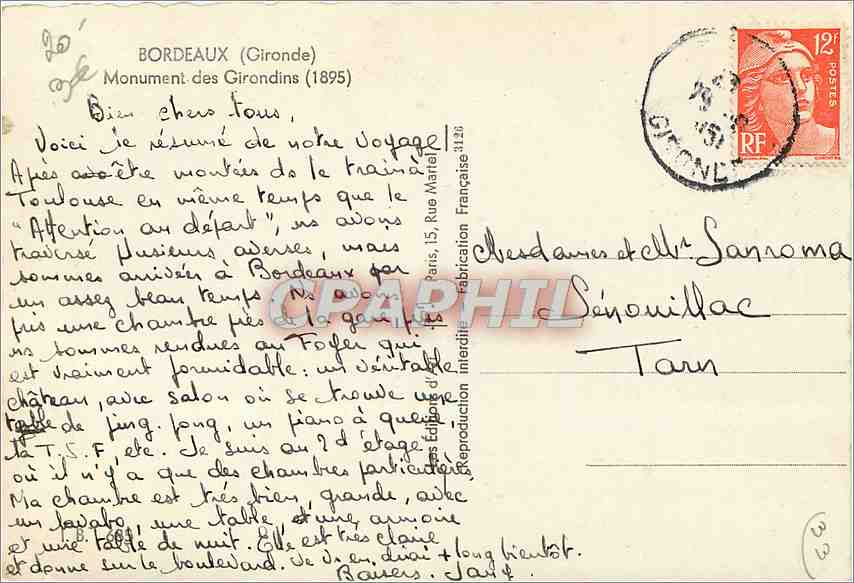 20
BORDEAUX (Gironde)
Monument des Girondins (1895)
Bien chers tous,
Voici le résumé de notre voyage
Après être montées ds le train à
Toulouse en même temps que le
"Attention au départ", ns avons
traversé plusieurs averses, mais
sommes arrivées à Bordeaux par
un assez beau temps. Ns avons
pris une chambre près de la gare, puis
ns sommes rendues au Foyer qui
est vraiment formidable : un véritable
château, avec salon où se trouve une
table de ping-pong, un piano à queue,
la T.S.F, etc. Je suis au 2d étage
où il n'y a que des chambres particulières
Ma chambre est très bien, grande, avec
un lavabo, une table, une armoire
et une table de nuit. Elle est très claire
et donne sur le boulevard. Je vs en dirai + long bientôt.
Baisers.
B. 68
Editions d'
Paris, 15, Rue Martel
Reproduction interdite
Fabrication Française 3126
CPARPHIL
12F
POSTES
RF
GIRONDE
Mesdames et Mr Sanroma
Sénouillac
Tarn
33